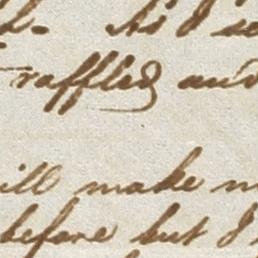 As I se
raffled and
ill make m
before but I